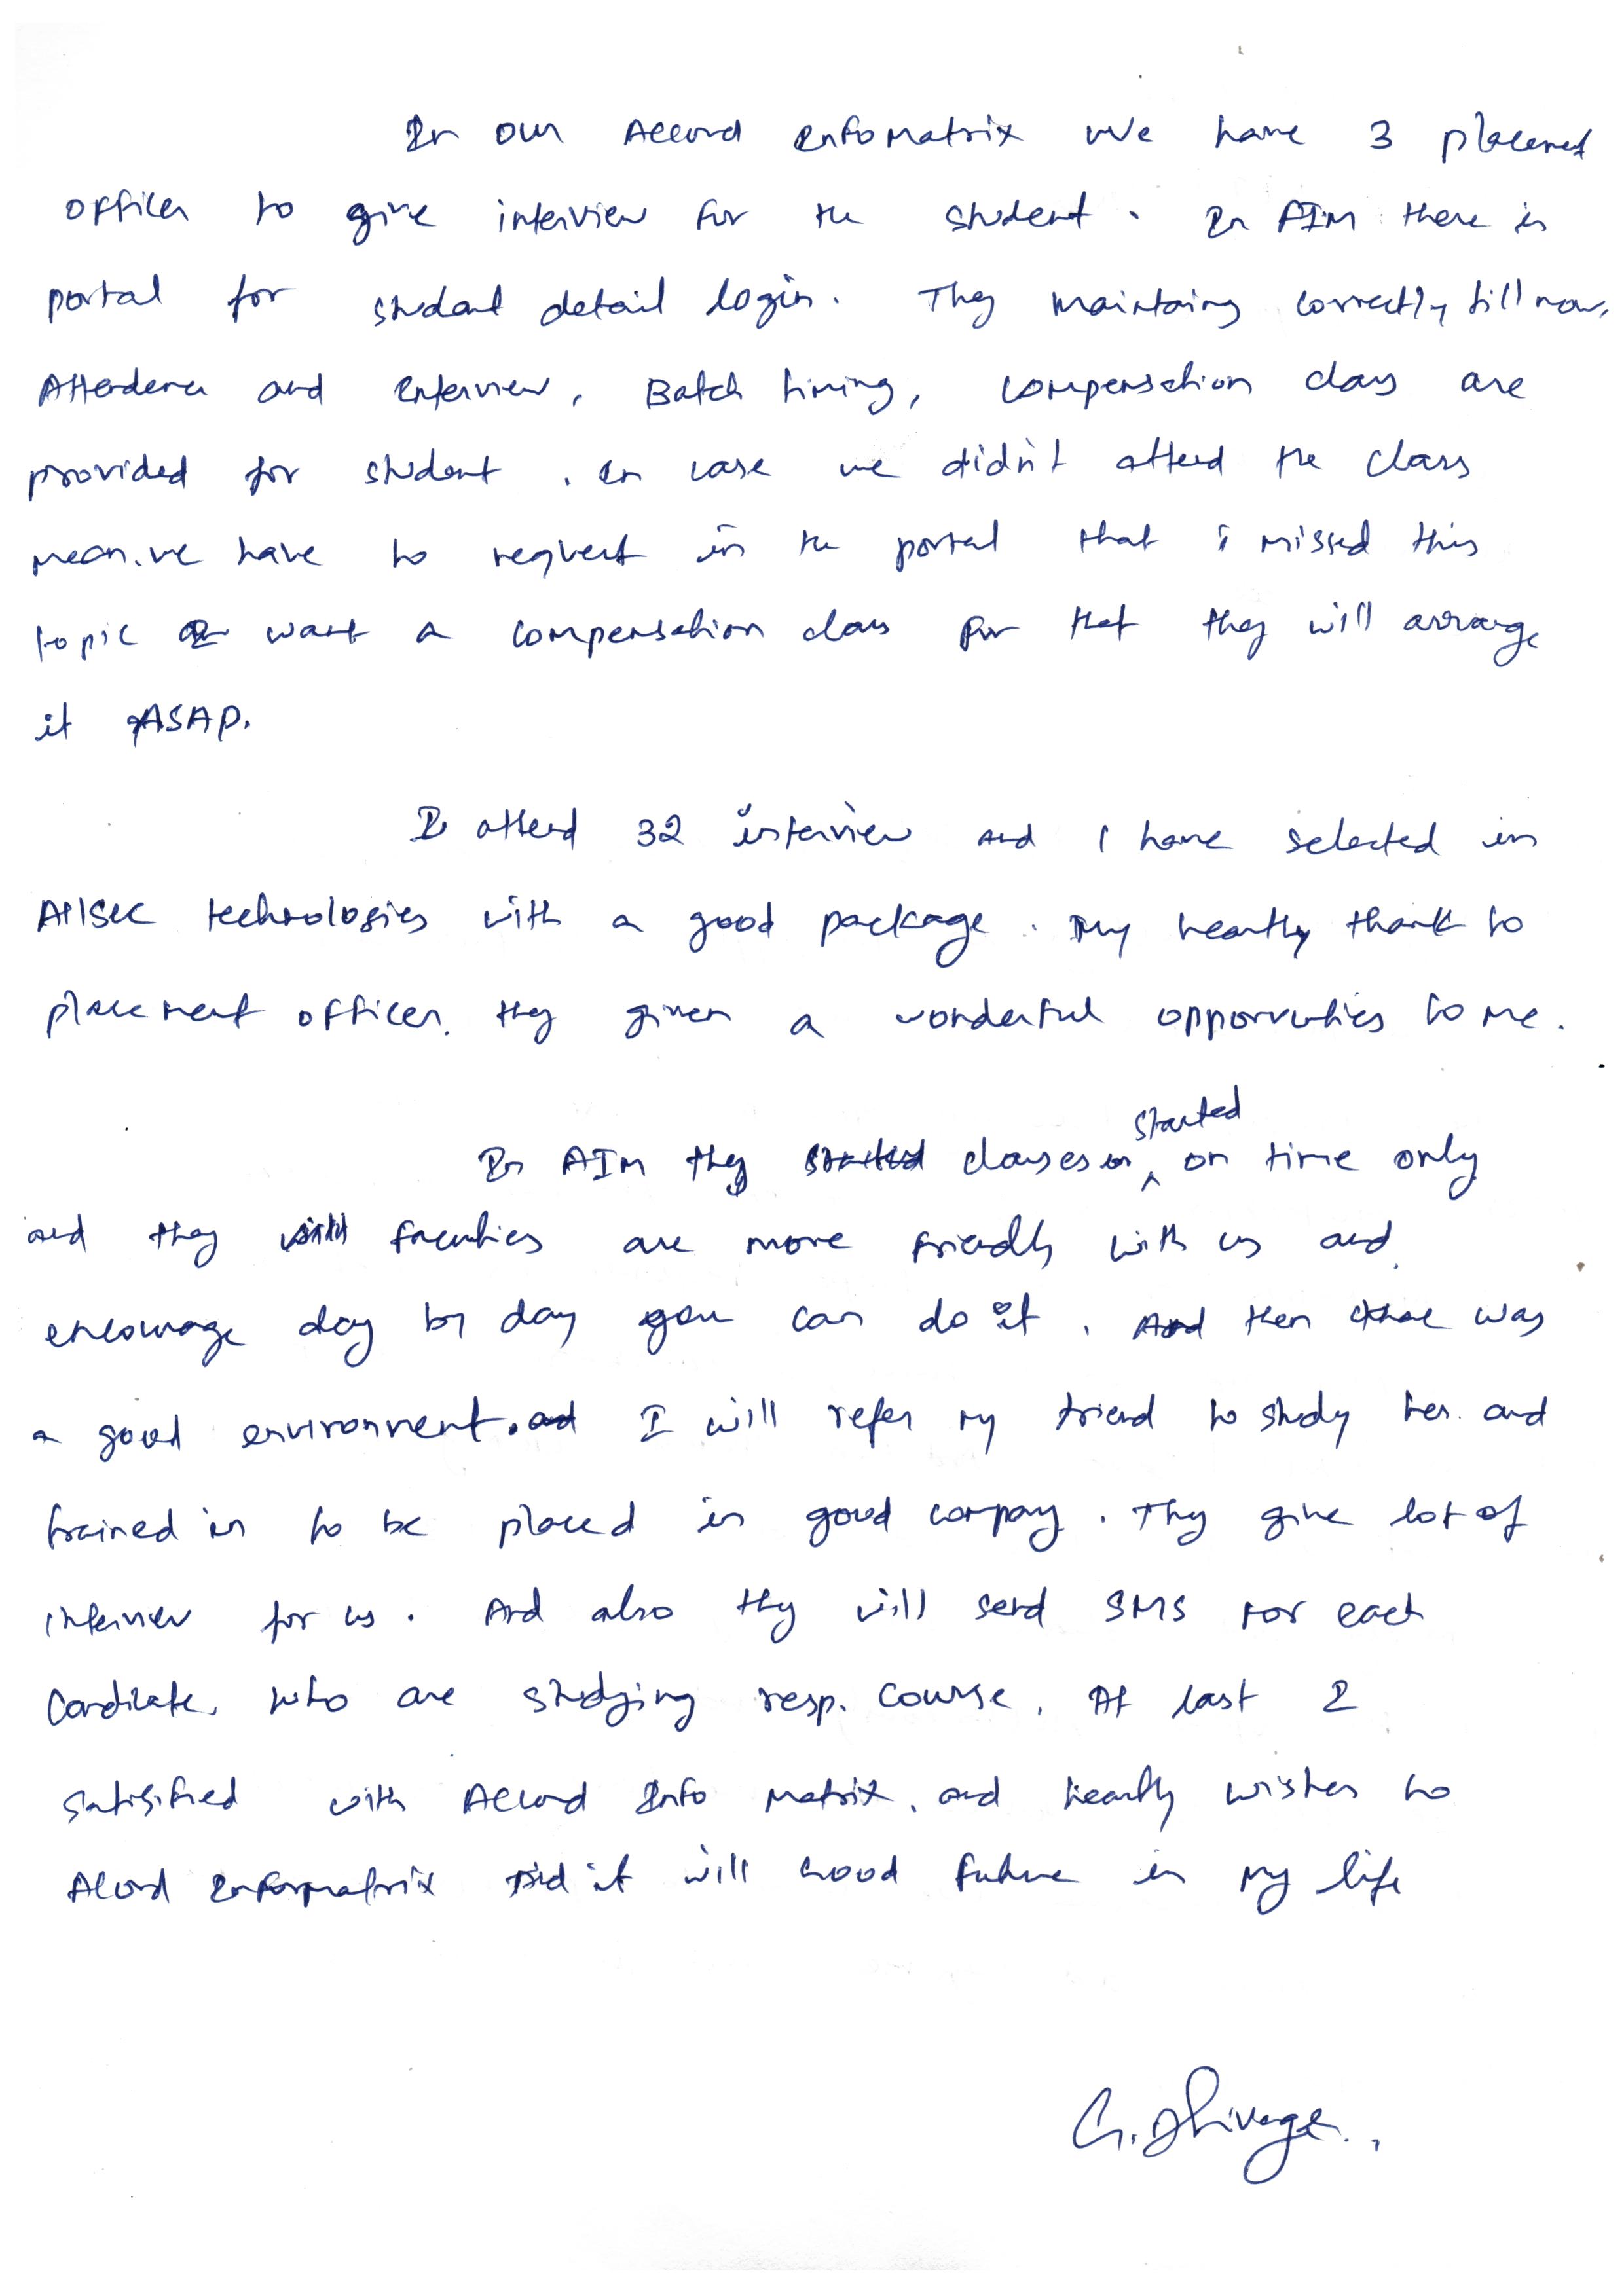 In our Accord InfoMatrix We have 3 placement
officer to give interview for the student. In AIM there is
portal for student detail login. They maintaing correctly till now,
Attendence and Interview, Batch timing, compensation class are
provided for student. In case we didn't attend the class
mean. we have to request in the portal that i missed this
topic I want a compensation class for that they will arrange
it ASAP.
I attend 32 interview and I have selected in
Allsec technologies with a good package. My heartly thank to
placement officer. they given a wonderful opportunities to me.
In AIM they classes started on time only
and they faculties are more friendly with us and
encourage day by day you can do it. And then there was
a good environment. I will refer my friend to study her. and
trained in to be placed in good company. They give lot of
interview for us. And also they will send SMS for each
Candidate, who are studying resp. course. At last I
satisified with Accord Info Matrix, and heartly wishes to
Accord Informatrix it will Good future in my life